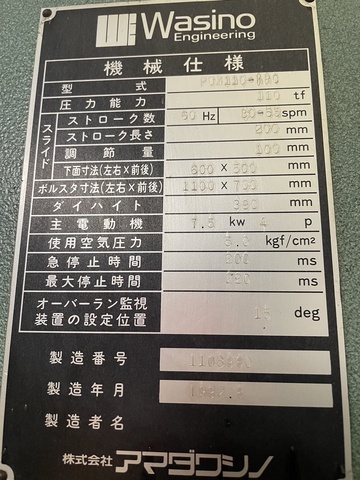 Wasino
Engineering
機械仕様
型式
圧力能力 110 tf
スライド
ストローク数 60 Hz spm
ストローク長さ 200 mm
調節量 100 mm
下面寸法(左右×前後) 600 × 500 mm
ボルスタ寸法(左右×前後) 1100 × mm
ダイハイト mm
主電動機 7.5 kw 4 p
使用空気圧力 kgf/cm²
急停止時間 200 ms
最大停止時間 ms
オーバーラン監視
装置の設定位置 15 deg
製造番号
製造年月
製造者名
株式会社 アマダワシノ